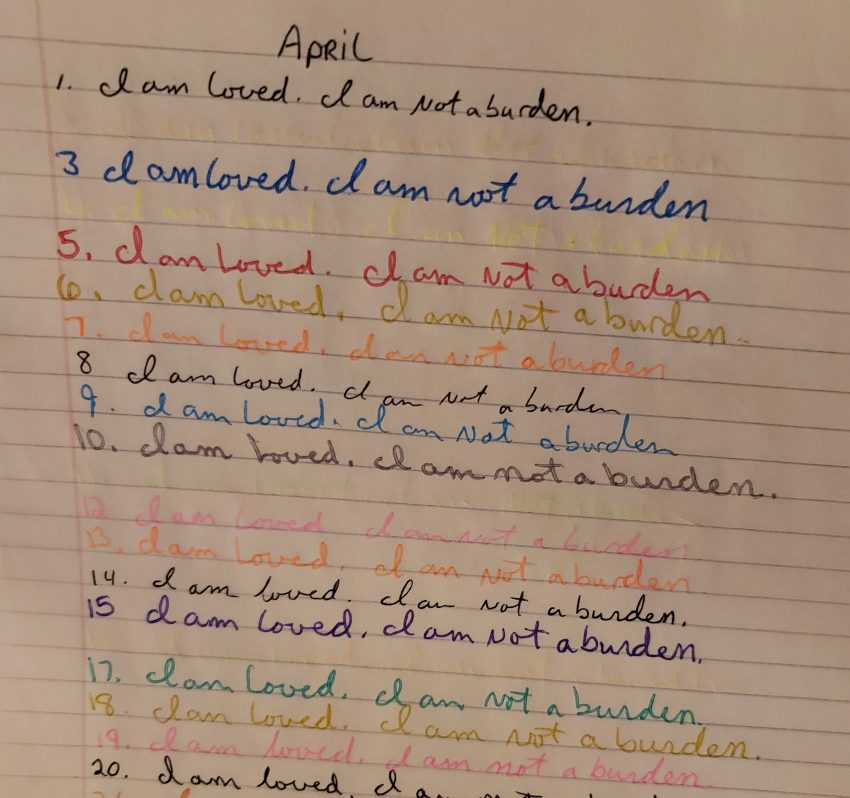 April
1. I am loved. I am not a burden.
3 I am loved. I am not a burden
4. I am loved. I am not a burden.
5. I am loved. I am not a burden
6. I am loved, I am not a burden.
7. I am loved. I am not a burden
8 I am loved. I am not a burden
9. I am loved. I am not a burden
10. I am loved. I am not a burden.
12 I am loved I am not a burden
13. I am loved. I am not a burden
14. I am loved. I am not a burden.
15 I am loved. I am not a burden.
17. I am loved. I am not a burden.
18. I am loved. I am not a burden.
19. I am loved. I am not a burden
20. I am loved. I